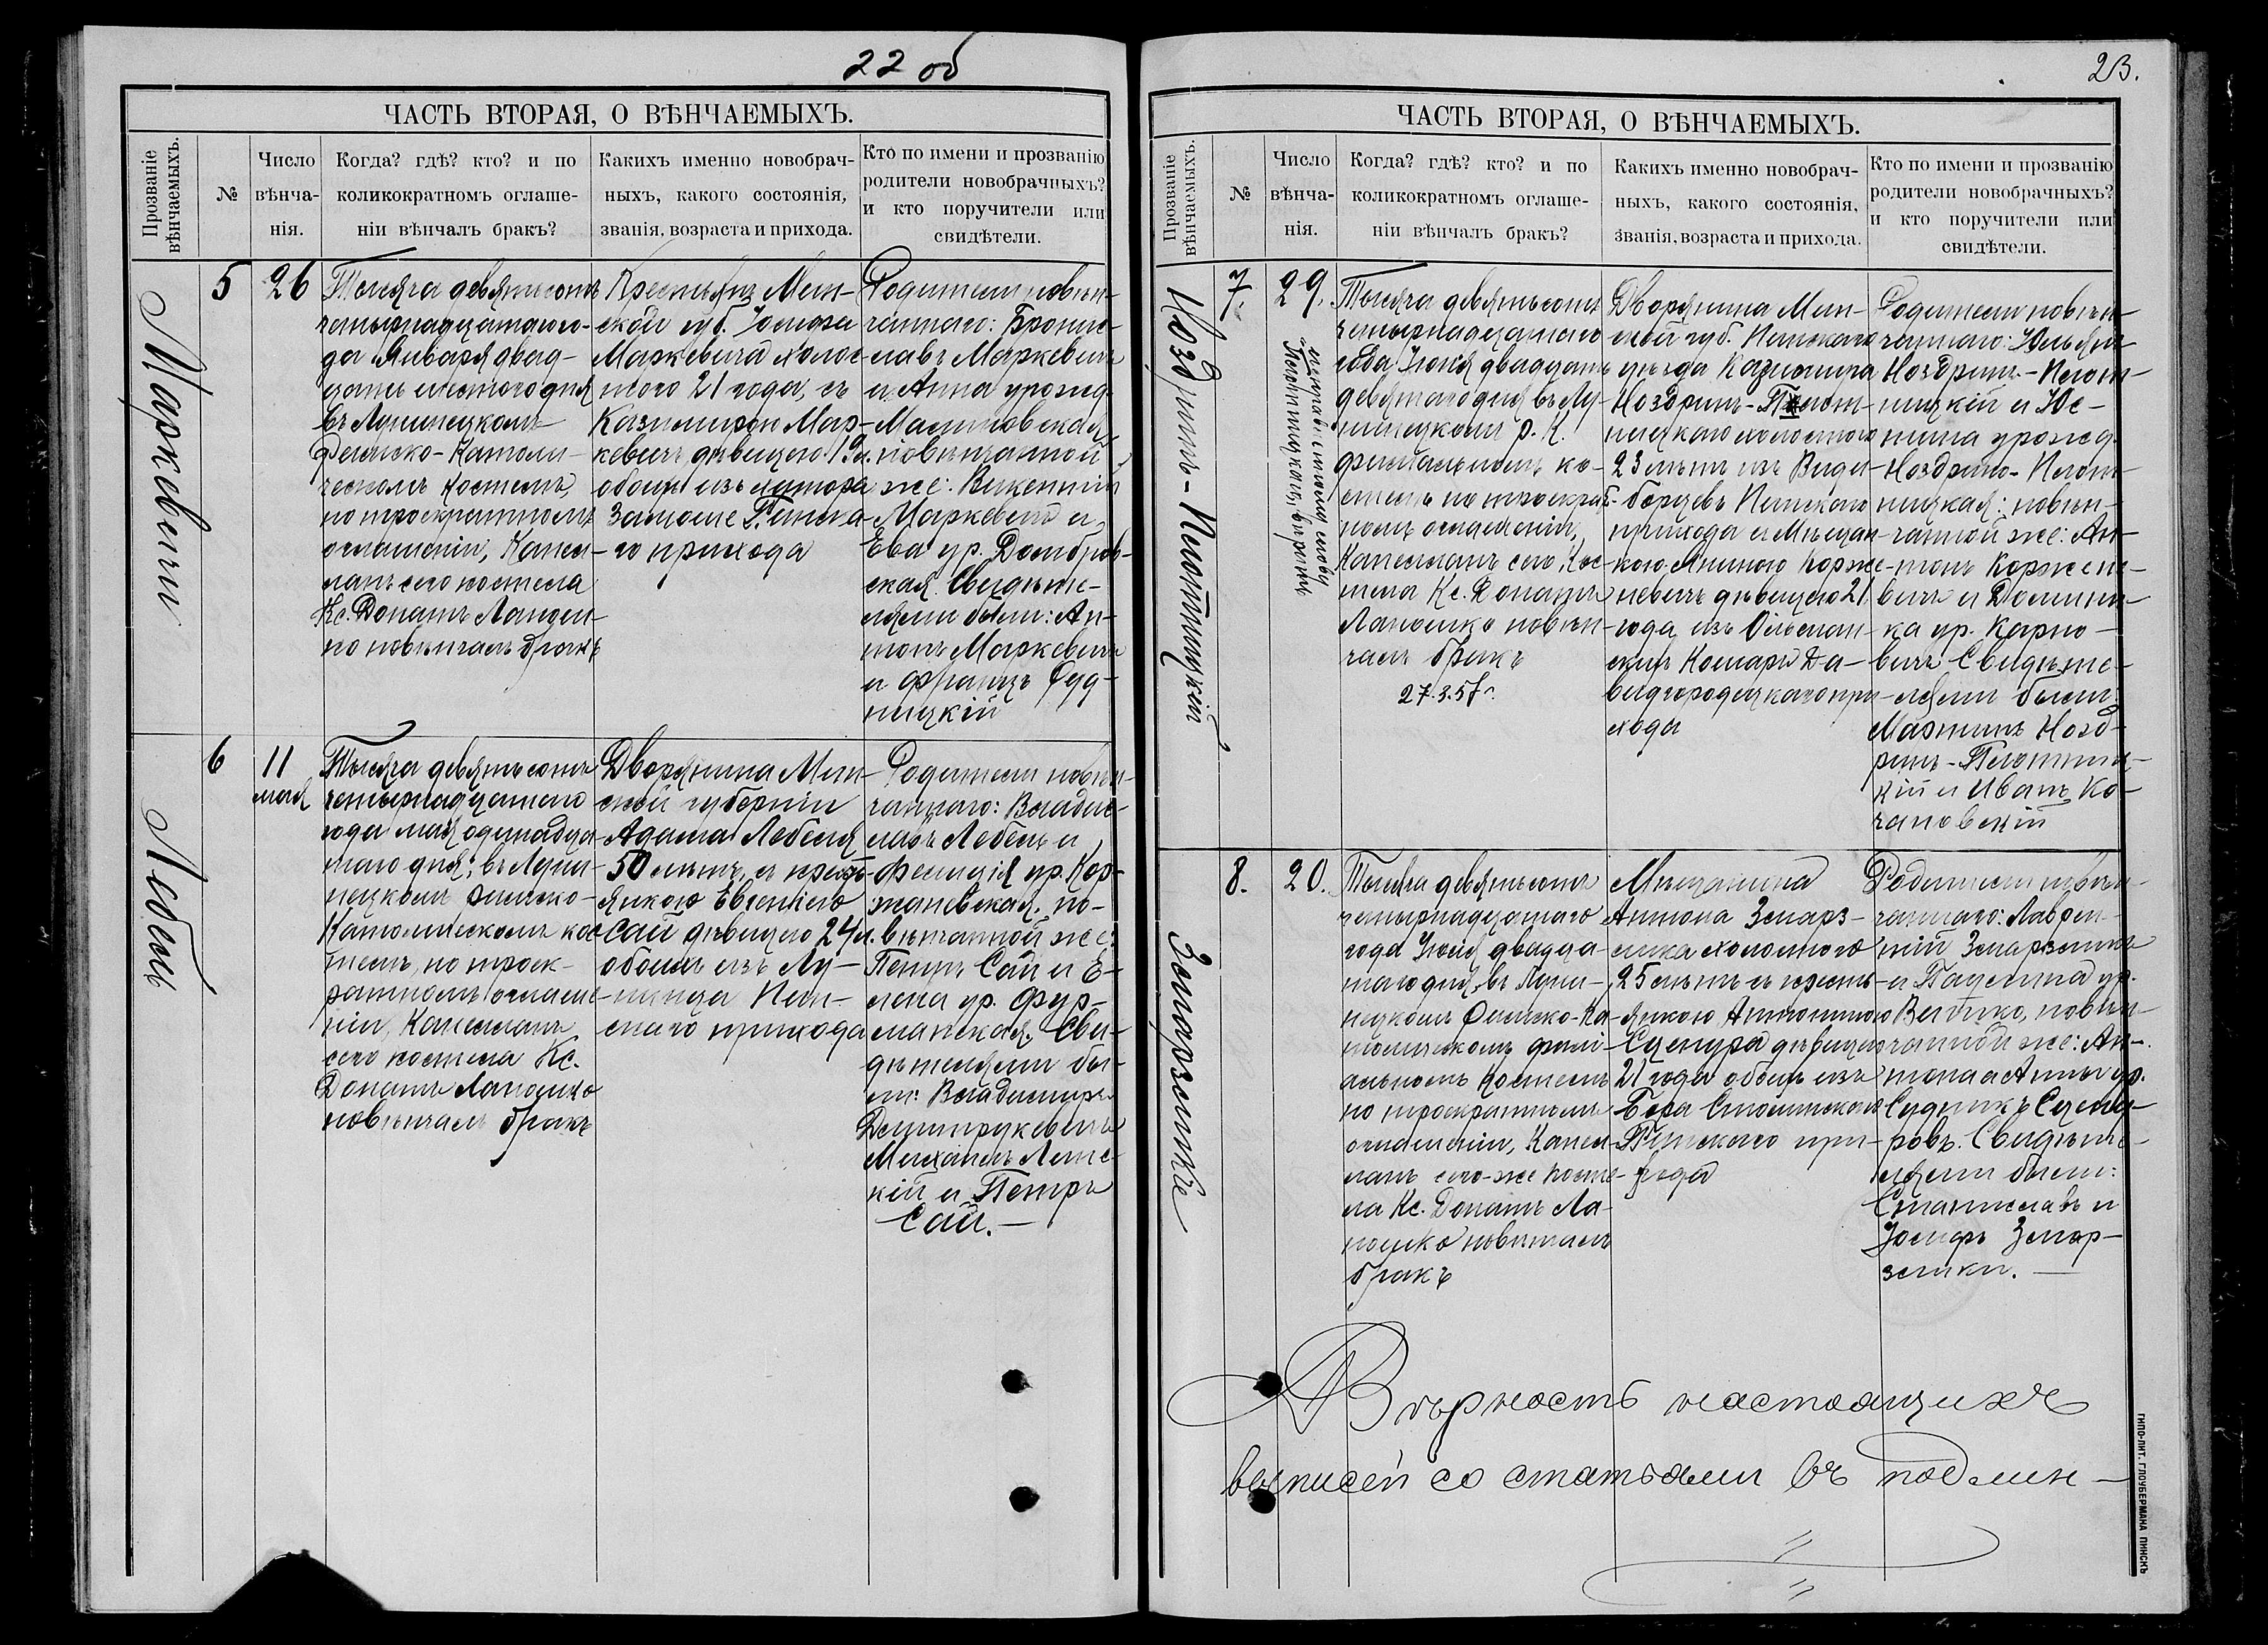 22 об
ЧАСТЬ ВТОРАЯ, О ВѢНЧАЕМЫХЪ.
Прозваніе
вѣнчаемыхъ.
№
Число
вѣнча-
нія.
Когда? гдѣ? кто? и по
коликократномъ оглаше-
ніи вѣнчалъ бракъ?
Какихъ именно новобрач-
ныхъ, какого состоянія,
званія, возраста и прихода.
Кто по имени и прозванію
родители новобрачныхъ?
и кто поручители или
свидѣтели.
Маркевичъ
5
26
Тысяча девятьсотъ
четырнадцатаго го-
да Января двад-
цать шестого дня
въ Лунинецкомъ
Римско-Католи-
ческомъ костелѣ,
по троекратномъ
оглашеніи, Капел-
ланъ сего костела
Кс. Донатъ
повѣнчалъ бракъ
Крестьянъ Мин-
ской губ. Іосифа
Маркевича холос-
того 21 года, съ
Казимирой Мар-
кевичъ дѣвицею 19 л.
обоихъ изъ хутора
Замошье Пинска-
го прихода
Родители повѣн-
чаннаго: Бронис-
лавъ Маркевичъ
и Анна урожд.
Малиновская,
повѣнчанной
же: Викентій
Маркевичъ и
Ева ур. Домбров-
ская. Свидѣте-
лями были: Ан-
тонъ Маркевичъ
и Францъ Руд-
ницкій
Лебель
6
11
мая
Тысяча девятьсотъ
четырнадцатаго
года мая одиннадца-
таго дня, въ Луни-
нецкомъ римско-
Католическомъ кос-
телѣ, по троек-
ратномъ оглаше-
ніи, Капелланъ
сего костела Кс.
Донатъ Лапошко
повѣнчалъ бракъ
Дворянина Мин-
ской губерніи
Адама Лебеля
50 лѣтъ, съ крестъ-
янкою Евгеніею
Сай дѣвицею 24 л.
обоихъ изъ Лу-
нинца Пин-
скаго прихода
Родители повѣн-
чаннаго: Владис-
лавъ Лебель и
Фелиція ур. Кор-
жаневская, по-
вѣнчанной же:
Петръ Сай и Е-
лена ур. Фур-
манская. Сви-
дѣтелями бы-
ли: Владимиръ
Дмитрукевичъ
Михаилъ
кій и Петръ
Сай.—
23.
ЧАСТЬ ВТОРАЯ, О ВѢНЧАЕМЫХЪ.
Прозваніе
вѣнчаемыхъ.
№
Число
вѣнча-
нія.
Когда? гдѣ? кто? и по
коликократномъ оглаше-
ніи вѣнчалъ бракъ?
Какихъ именно новобрач-
ныхъ, какого состоянія,
званія, возраста и прихода.
Кто по имени и прозванію
родители новобрачныхъ?
и кто поручители или
свидѣтели.
Ноздринъ-Плотницкій
7.
29.
Тысяча девятьсотъ
четырнадцатаго
года Іюня двадцать
девятаго дня въ Лу-
нинецкомъ р. К.
филіальномъ ко-
стелѣ по троекрат-
номъ оглашеніи,
Капелланъ сего Кос-
тела Кс. Донатъ
Лапошко повѣн-
чалъ бракъ
27.3.57 г.
Дворянина Мин-
ской губ. Пинскаго
уѣзда Казимира
Ноздринъ-Плот-
ницкаго холостого
23 лѣтъ изъ Види-
борцевъ Пинскаго
прихода съ Мѣщан-
кою Яниною Корже-
невичъ дѣвицею 21
года, изъ Ольман-
скихъ Кошаръ Да-
видгородецкаго при-
хода
Родители повѣн-
чаннаго: Юльянъ
Ноздринъ-Плот-
ницкій и Юс-
тина урожд.
Ноздринъ-Плот-
ницкая; повѣн-
чанной же: Ан-
тонъ Коржене-
вичъ и Домини-
ка ур. Карпо-
вичъ Свидѣте-
лями были:
Мартинъ Нозд-
ринъ-Плотниц-
кій и Иванъ Ко-
чановскій
Змарзликъ
8.
20.
Тысяча девятьсотъ
четырнадцатаго
года Іюля двадца-
таго дня, въ Луни-
нецкомъ Римско-Ка-
толическомъ фили-
альномъ Костелѣ
по троекратномъ
оглашеніи, Капел-
ланъ сего-же косте-
ла Кс. Донатъ Ла-
пошко повѣнчалъ
бракъ
Мѣщанина
Антона Змарз-
лика холостого
25 лѣтъ съ кресть-
янкою Антониною
Сцепура дѣвицею
21 года обоихъ изъ
Столинскаго
Пинскаго при-
хода
Родители повѣн-
чаннаго: Лаврен-
тій Змарзликъ
и Паулина ур.
Велічко, повѣн-
чанной же: Ан-
тона и Анны ур.
Судникъ Сцепу-
ровъ. Свидѣте-
лями были:
Станиславъ и
Іосифъ Змар-
злики.—
Вѣрность настоящихъ
выписей со статьями въ подлин-
ТИПО-ЛИТ. ГЛОУБЕРМАНА ПИНСКЪ